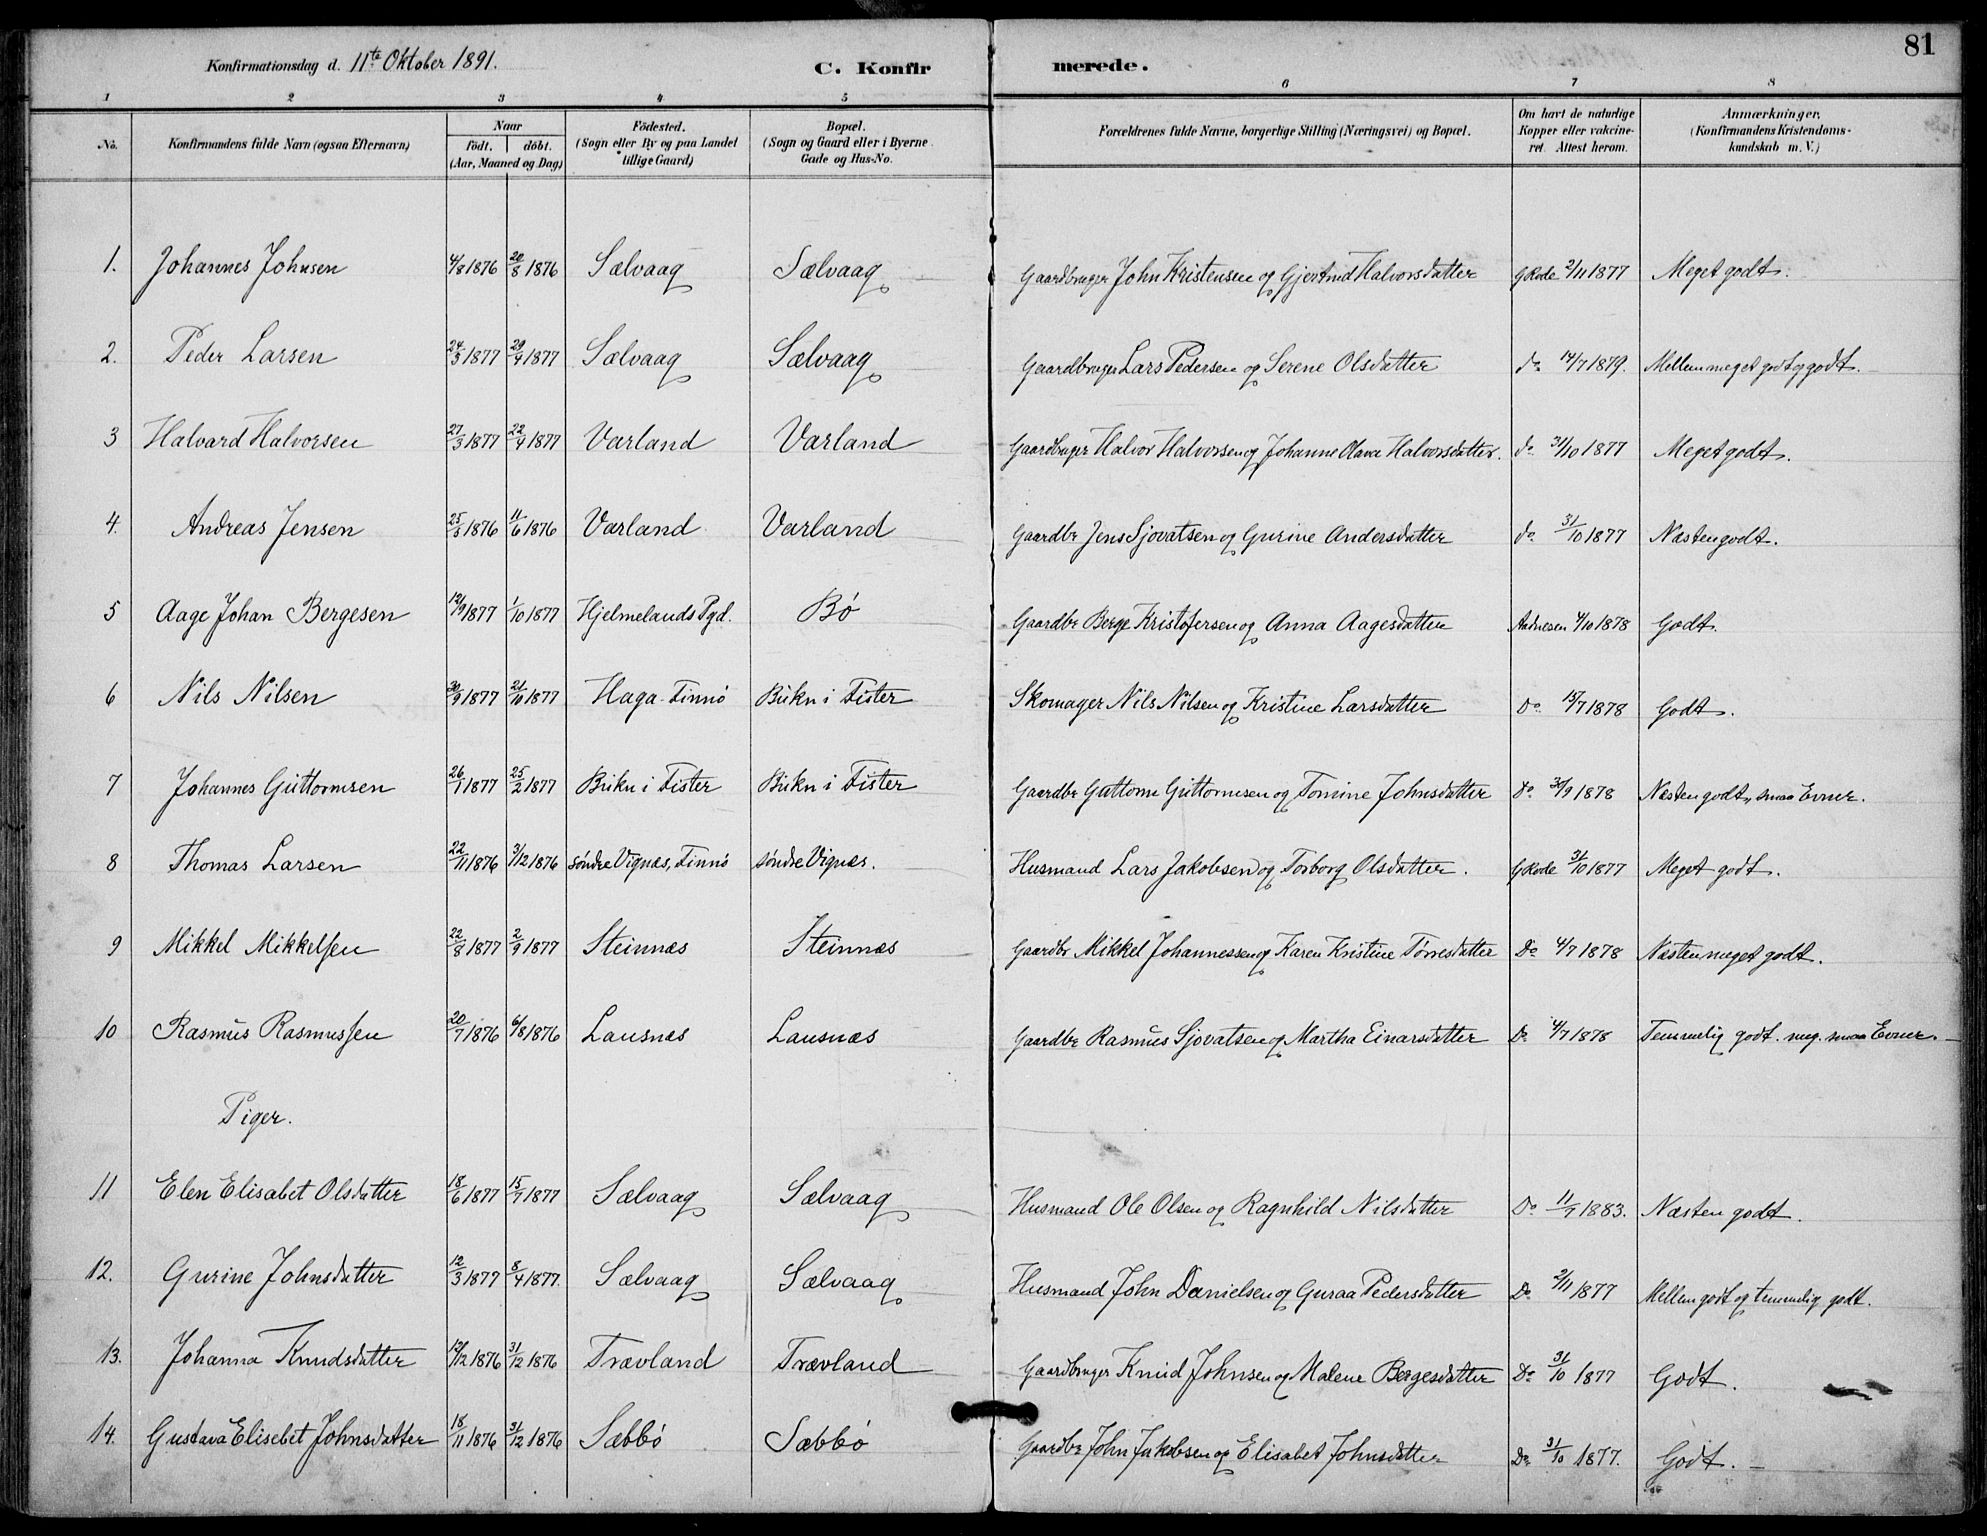 81
Konfirmationsdag d. 11te Oktober 1891. C. Konfirmerede.
1 2 3 4 5 6 7 8
No. Konfirmandens fulde Navn (ogsaa Efternavn) Naar födt. döbt. (Aar, Maaned og Dag) Födested. (Sogn eller By og paa Landet tillige Gaard) Bopæl. (Sogn og Gaard eller i Byerne Gade og Hus-No. Forældrenes fulde Navne, borgerlige Stilling (Næringsvei) og Bopæl. Om havt de naturlige Kopper eller vakcineret. Attest herom. Anmærkninger, (Konfirmandens Kristendomskundskab m. V.)
1. Johannes Johnsen 4/8 1876 20/8 1876 Sælvaag Sælvaag Gaardbruger John Kristensen og Gjertrud Halvorsdatter GRode 2/11 1877 Meget godt.
2. Peder Larsen 24/3 1877 29/4 1877 Sælvaag Sælvaag Gaardbruger Lars Pedersen og Serene Olsdatter do 14/7 1879. Mellem meget godt og godt.
3 Halvard Halvorsen 27/3 1877 22/4 1877 Varland Varland Gaardbruger Halvor Halvorsen og Johanne Olava Halvorsdatter. do 31/10 1877 Meget godt.
4. Andreas Jensen 25/5 1876 11/6 1876 Varland Varland Gaardbr Jens Sjovatsen og Gurine Andersdatter do 31/10 1877 Næsten godt.
5 Aage Johan Bergesen 12/9 1877 1/10 1877 Hjelmelands Pgd. Bö Gaardbr Berge Kristofersen og Anna Aagesdatter Aadnesen 4/10 1878 Godt.
6 Nils Nilsen 30/9 1877 21/10 1877 Haga-Finnö Bukn i Fister Skomager Nils Nilsen og Kristine Larsdatter Do 15/7 1878 Godt.
7 Johannes Guttormsen 26/1 1877 25/2 1877 Bukn i Fister Bukn i Fister Gaardbr Guttorm Guttormsen og Tomine Johnsdatter Do 30/9 1878 Næsten godt, smaa Evner.
8 Thomas Larsen 22/11 1876 3/12 1876 söndre Vignæs, Finnö söndre Vignæs. Husmand Lars Jakobsen og Torborg Olsdatter. GRode 31/10 1877 Meget godt.
9 Mikkel Mikkelsen 22/8 1877 2/9 1877 Steinnæs Steinnæs Gaardbr Mikkel Johannessen og Karen Kristine Törresdatter Do 4/7 1878 Næsten meget godt.
10 Rasmus Rasmussen 20/7 1876 6/8 1876 Lausnæs Lausnæs Gaardbr Rasmus Sjovatsen og Martha Einarsdatter Do 4/7 1878 Temmelig godt. meg. smaa Evner.
Piger.
11 Elen Elisabet Olsdatter 18/6 1877 15/7 1877 Sælvaag Sælvaag Husmand Ole Olsen og Ragnhild Nilsdatter Do 11/7 1883. Næsten godt.
12. Gurine Johnsdatter 12/3 1877 8/4 1877. Sælvaag Sælvaag Husmand John Danielsen og Guraa Pedersdatter Do 2/11 1877 Mellem godt og temmelig godt.
13. Johanna Knudsdatter 12/12 1876 31/12 1876 Trævland Trævland Gaardbruger Knud Johnsen og Malene Bergesdatter Do 31/10 1877 Godt.
14. Gustava Elisebet Johnsdatter 18/11 1876 31/12 1876 Sæbbö Sæbbö Gaardbr John Jakobsen og Elisabet Johnsdatter Do 31/10 1877. Godt.